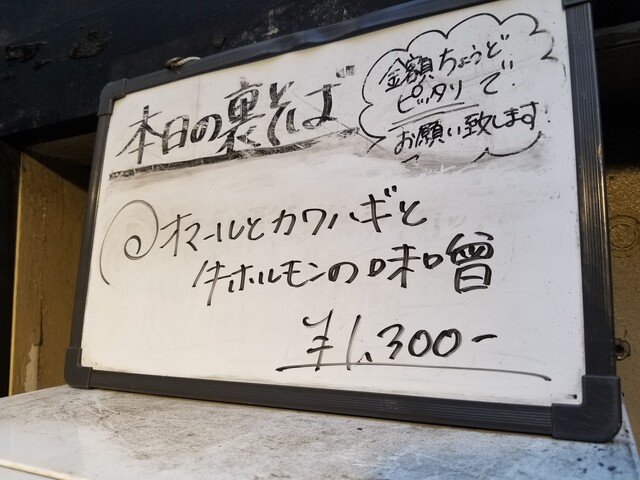 本日の裏そば
金額ちょうど
ピッタリで
お願い致します!
オマールとカワハギと
牛ホルモンの味噌
¥1,300-